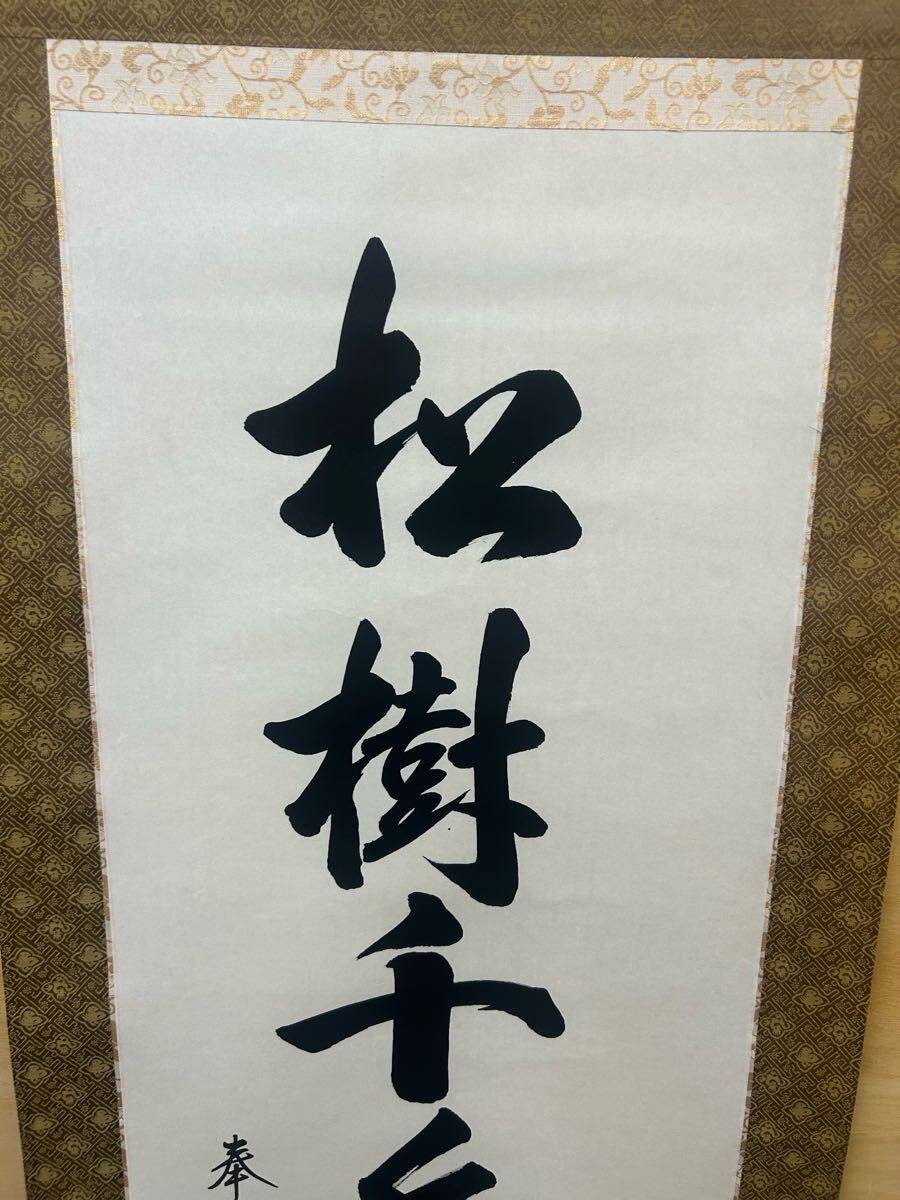 松樹千
奉